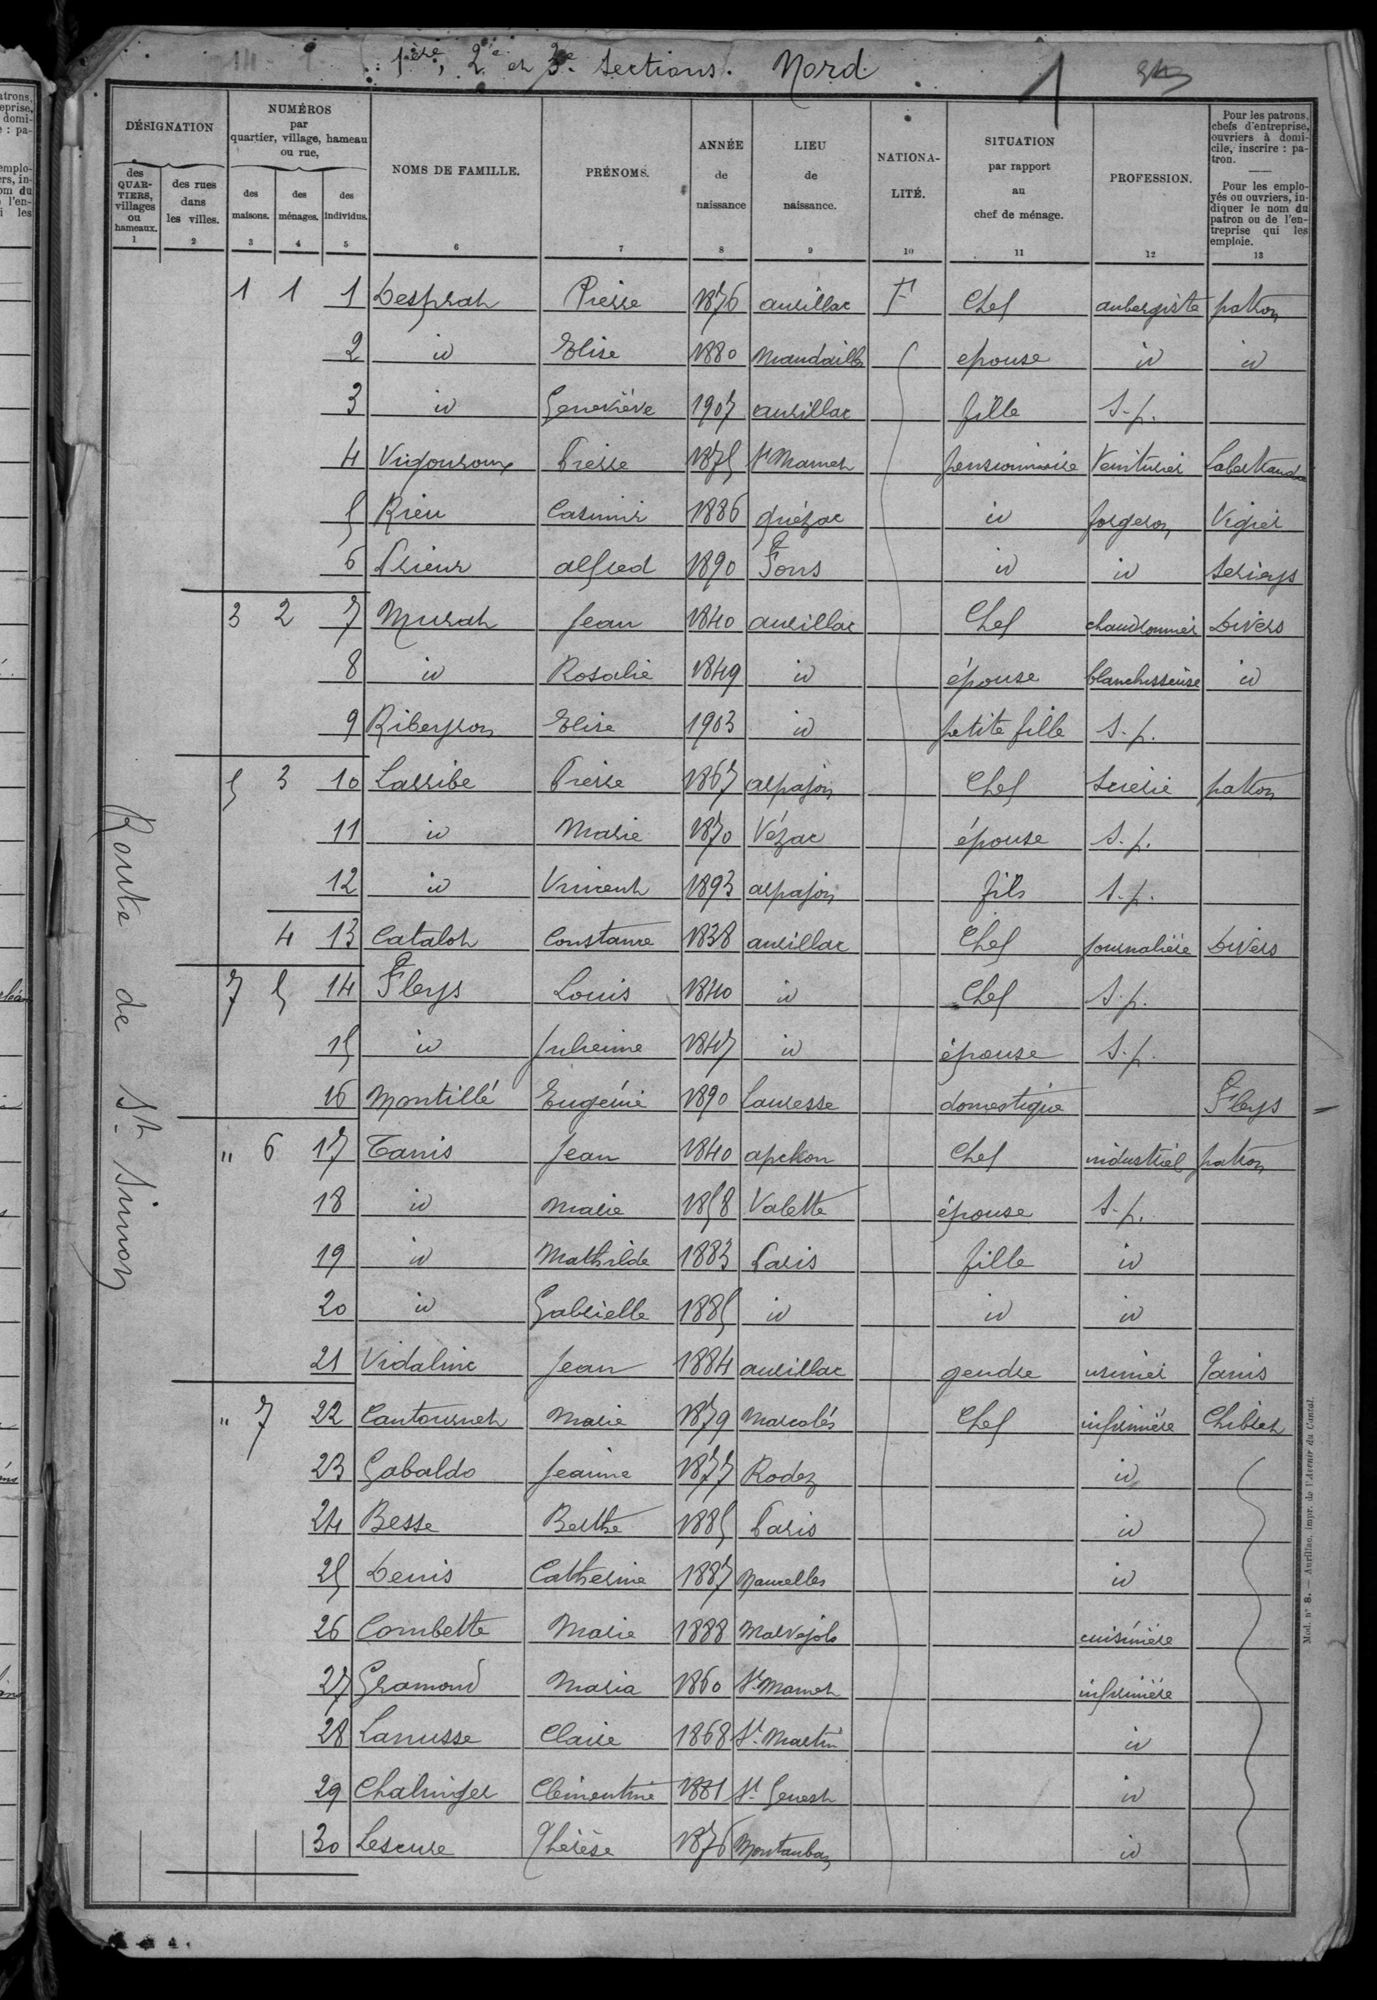 1ère, 2e et 3e Sections. Nord.
1
DÉSIGNATION
NUMÉROS par quartier, village, hameau ou rue,
NOMS DE FAMILLE.
PRÉNOMS.
ANNÉE de naissance
LIEU de naissance.
NATIONALITÉ.
SITUATION par rapport au chef de ménage.
PROFESSION.
Pour les patrons, chefs d'entreprise, ouvriers à domicile, inscrire : patron.
Pour les employés ou ouvriers, indiquer le nom du patron ou de l'entreprise qui les emploie.
des QUARTIERS, villages ou hameaux.
des rues dans les villes.
des maisons.
des ménages.
des individus.
1 2 3 4 5 6 7 8 9 10 11 12 13
Route de St. Simon
1 1 1 Desprat Pierre 1876 aurillac F Chef aubergiste patron
2 id Elise 1880 Mandailles epouse id id
3 id Geneviève 1907 aurillac fille S.p.
4 Vigouroux Pierre 1875 St Mamet pensionnaire teinturier Labertrandie
5 Rieu Casimir 1886 Quézac id forgeron Vigier
6 Prieur alfred 1890 Fons id id Serieys
3 2 7 Murat Jean 1840 aurillac Chef chaudronnier Divers
8 id Rosalie 1849 id épouse blanchisseuse id
9 Ribeyron Elise 1903 id petite fille S.p.
5 3 10 Larribe Pierre 1867 arpajon Chef Scierie patron
11 id Marie 1870 Vézac épouse S.p.
12 id Vincent 1893 arpajon fils S.p.
4 13 Catalot Constance 1838 aurillac Chef journalière Divers
7 5 14 Fleys Louis 1840 id Chef S.p.
15 id Julienne 1847 id épouse S.p.
16 Montillé Eugénie 1890 Lauresse domestique Fleys
" 6 17 Tanis Jean 1840 apchon Chef industriel patron
18 id Marie 1858 Valette épouse S.p.
19 id Mathilde 1883 Paris fille id
20 id Gabrielle 1885 id id id
21 Vidalinc Jean 1884 aurillac gendre usinier Tanis
" 7 22 Cantournet Marie 1879 Marcolés Chef infirmière Chibret
23 Gabaldo Jeanne 1877 Rodez id
24 Besse Berthe 1885 Paris id
25 Denis Catherine 1887 Naucelles id
26 Combette Marie 1888 Marvejols cuisinière
27 Gramond Maria 1860 St. Mamet infirmière
28 Lanusse Claire 1868 St. Martin id
29 Chalinger Clémentine 1881 St. Genest id
30 Lescure Thérèse 1876 Montauban id
Mod. n° 8. — Aurillac, impr. de l'Avenir du Cantal.